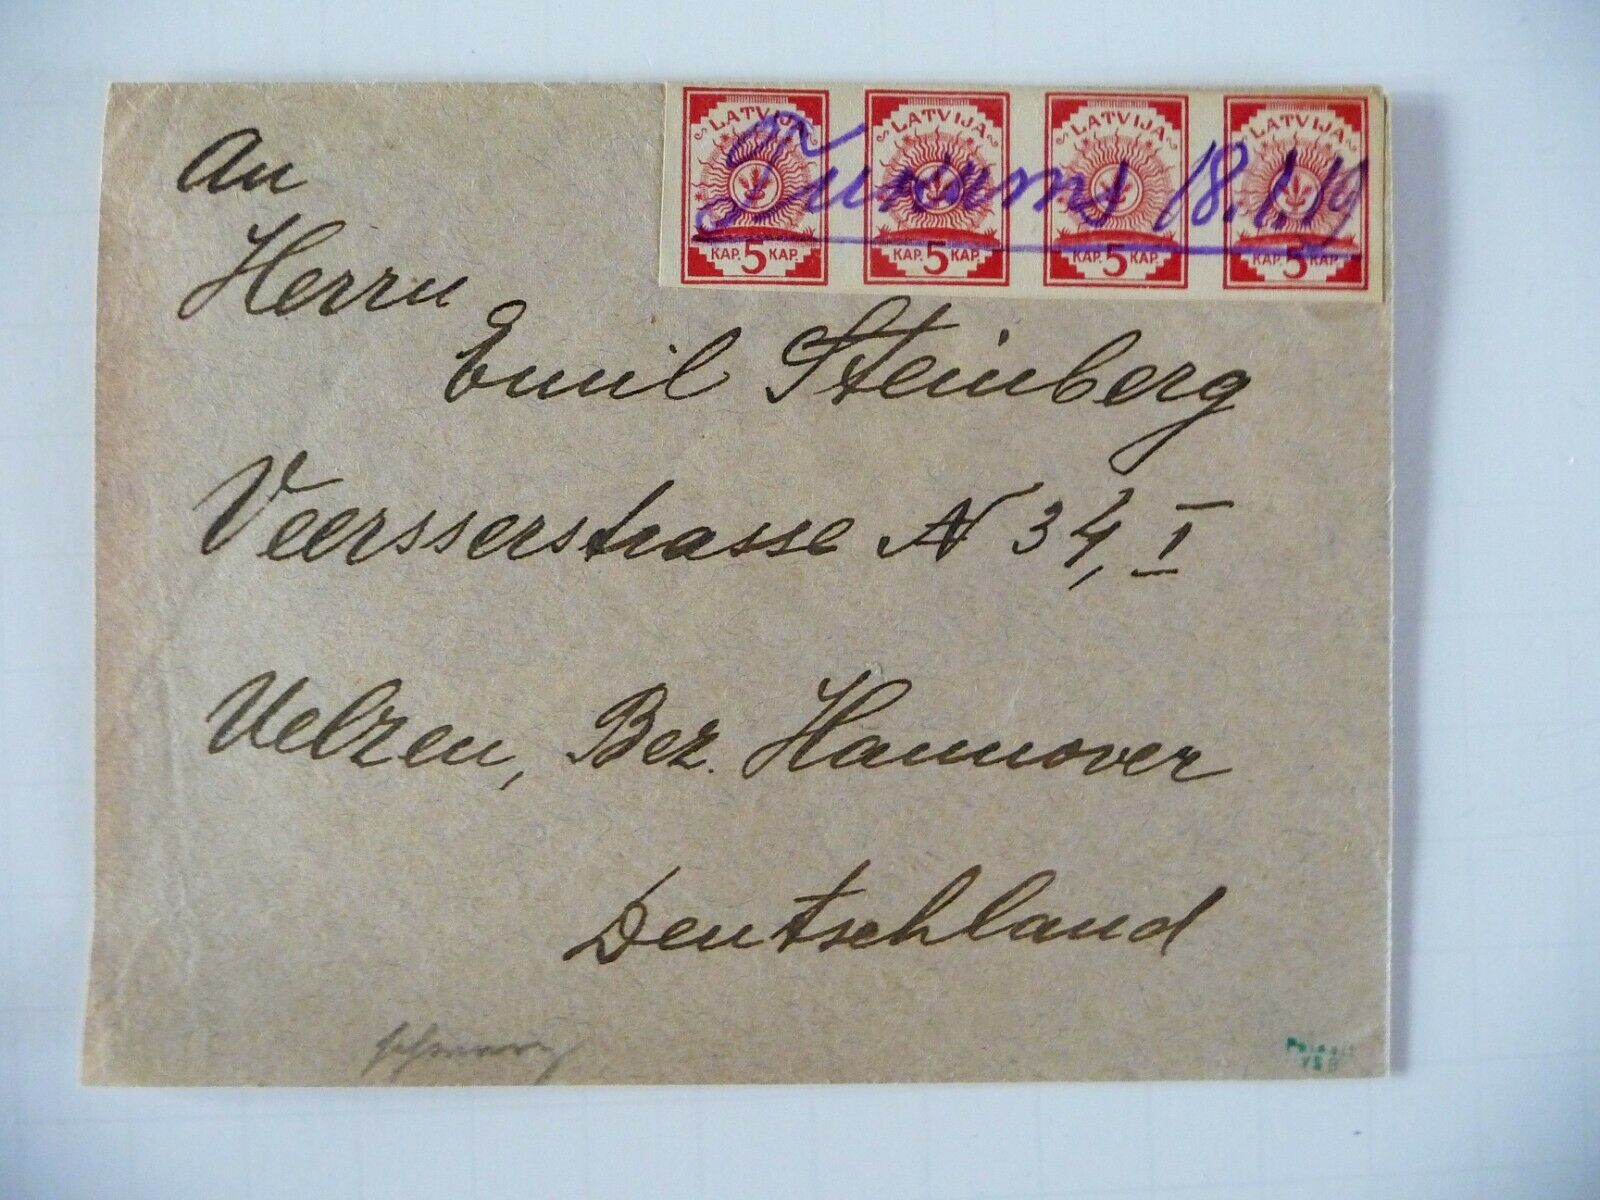 LATVIJA LATVIJA LATVIJA LATVIJA
18.1.19
KAP. 5 KAP. KAP. 5 KAP. KAP. 5 KAP. KAP. 5 KAP.
An
Herrn
Emil Steinberg
Veersserstrasse N 34, I
Uelzen, Bez. Hannover
Deutschland